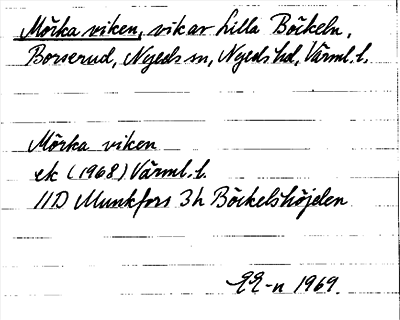 Mörka viken, vik av Lilla Böckeln,
Borserud, Nyeds sn, Nyeds hd, Värml. l.
Mörka viken
ek (1968) Värml. l.
11D Munkfors 3h Böckelshöjden
EE-n 1969.